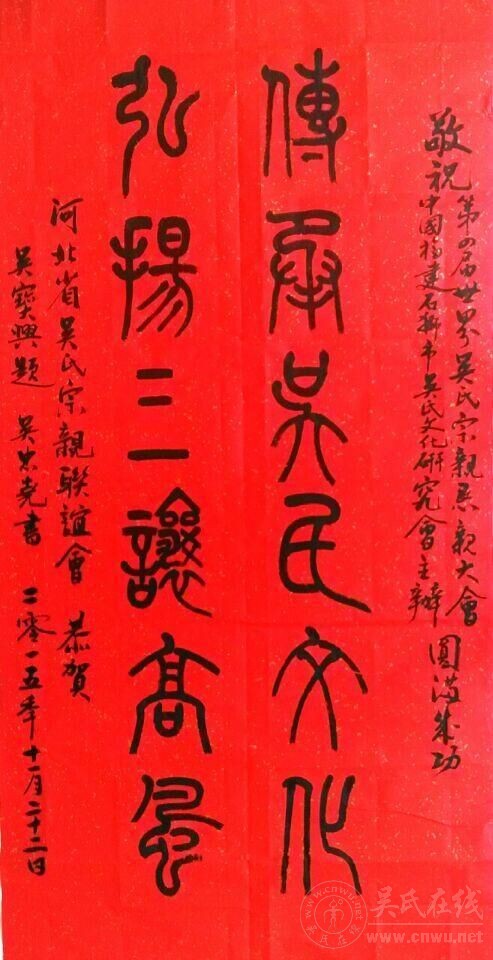 敬祝第四届世界吴氏宗親恳親大會
中國福建石獅市吴氏文化研究會主辦 圓滿成功
傳承吳氏文化
弘揚三讓高風
河北省吴氏宗親聯誼會 恭賀
吴寶興題 吴忠堯書 二零一五年十一月二十二日
吴氏在线
www.cnwu.net